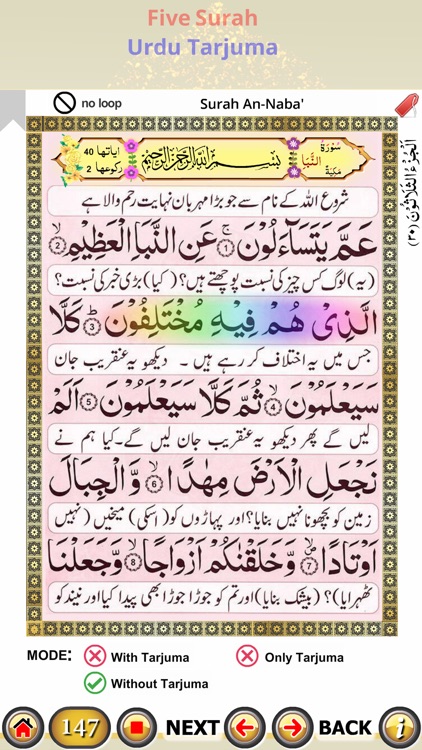 Five Surah
Urdu Tarjuma
no loop
Surah An-Naba'
سُوْرَةُ النَّبَا مَكِّيَّةٌ
بِسْمِ اللّٰهِ الرَّحْمٰنِ الرَّحِيْمِ
اٰیاتها 40
رکوعها 2
اَلْجُزْءُ الثَّلَاثُوْنَ (۳۰)
شروع اللہ کے نام سے جو بڑا مہربان نہایت رحم والا ہے
عَمَّ یَتَسَآءَلُوْنَ ۚ ﴿1﴾ عَنِ النَّبَاِ الْعَظِیْمِ ۙ ﴿2﴾
(یہ) لوگ کس چیز کی نسبت پوچھتے ہیں؟ (کیا) بڑی خبر کی نسبت؟
الَّذِیْ هُمْ فِیْهِ مُخْتَلِفُوْنَ ؕ ﴿3﴾ كَلَّا
جس میں یہ اختلاف کر رہے ہیں ۔ دیکھو یہ عنقریب جان
سَیَعْلَمُوْنَ ۙ ﴿4﴾ ثُمَّ كَلَّا سَیَعْلَمُوْنَ ﴿5﴾ اَلَمْ
لیں گے پھر دیکھو یہ عنقریب جان لیں گے۔ کیا ہم نے
نَجْعَلِ الْاَرْضَ مِهٰدًا ۙ ﴿6﴾ وَّ الْجِبَالَ
زمین کو بچھونا نہیں بنایا؟ اور پہاڑوں کو (اسکی) میخیں (نہیں
اَوْتَادًا ۪ۙ ﴿7﴾ وَّ خَلَقْنٰكُمْ اَزْوَاجًا ۙ ﴿8﴾ وَّ جَعَلْنَا
ٹھہرایا)؟ (بیشک بنایا) اور تم کو جوڑا جوڑا بھی پیدا کیا اور نیند کو
MODE:
With Tarjuma
Only Tarjuma
Without Tarjuma
147
NEXT
BACK
i